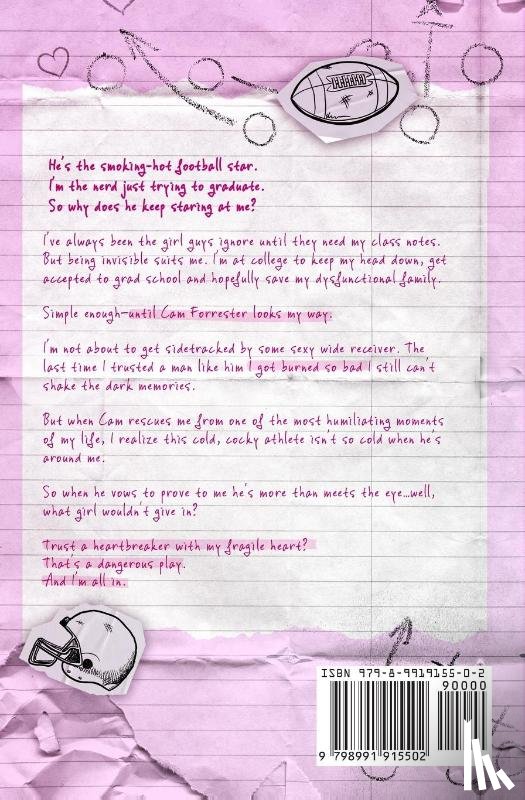 He's the smoking-hot football star.
I'm the nerd just trying to graduate.
So why does he keep staring at me?
I've always been the girl guys ignore until they need my class notes.
But being invisible suits me. I'm at college to keep my head down, get
accepted to grad school and hopefully save my dysfunctional family.
Simple enough—until Cam Forrester looks my way.
I'm not about to get sidetracked by some sexy wide receiver. The
last time I trusted a man like him I got burned so bad I still can't
shake the dark memories.
But when Cam rescues me from one of the most humiliating moments
of my life, I realize this cold, cocky athlete isn't so cold when he's
around me.
So when he vows to prove to me he's more than meets the eye...well,
what girl wouldn't give in?
Trust a heartbreaker with my fragile heart?
That's a dangerous play.
And I'm all in.
ISBN 979-8-9919155-0-2
90000
9 798991 915502